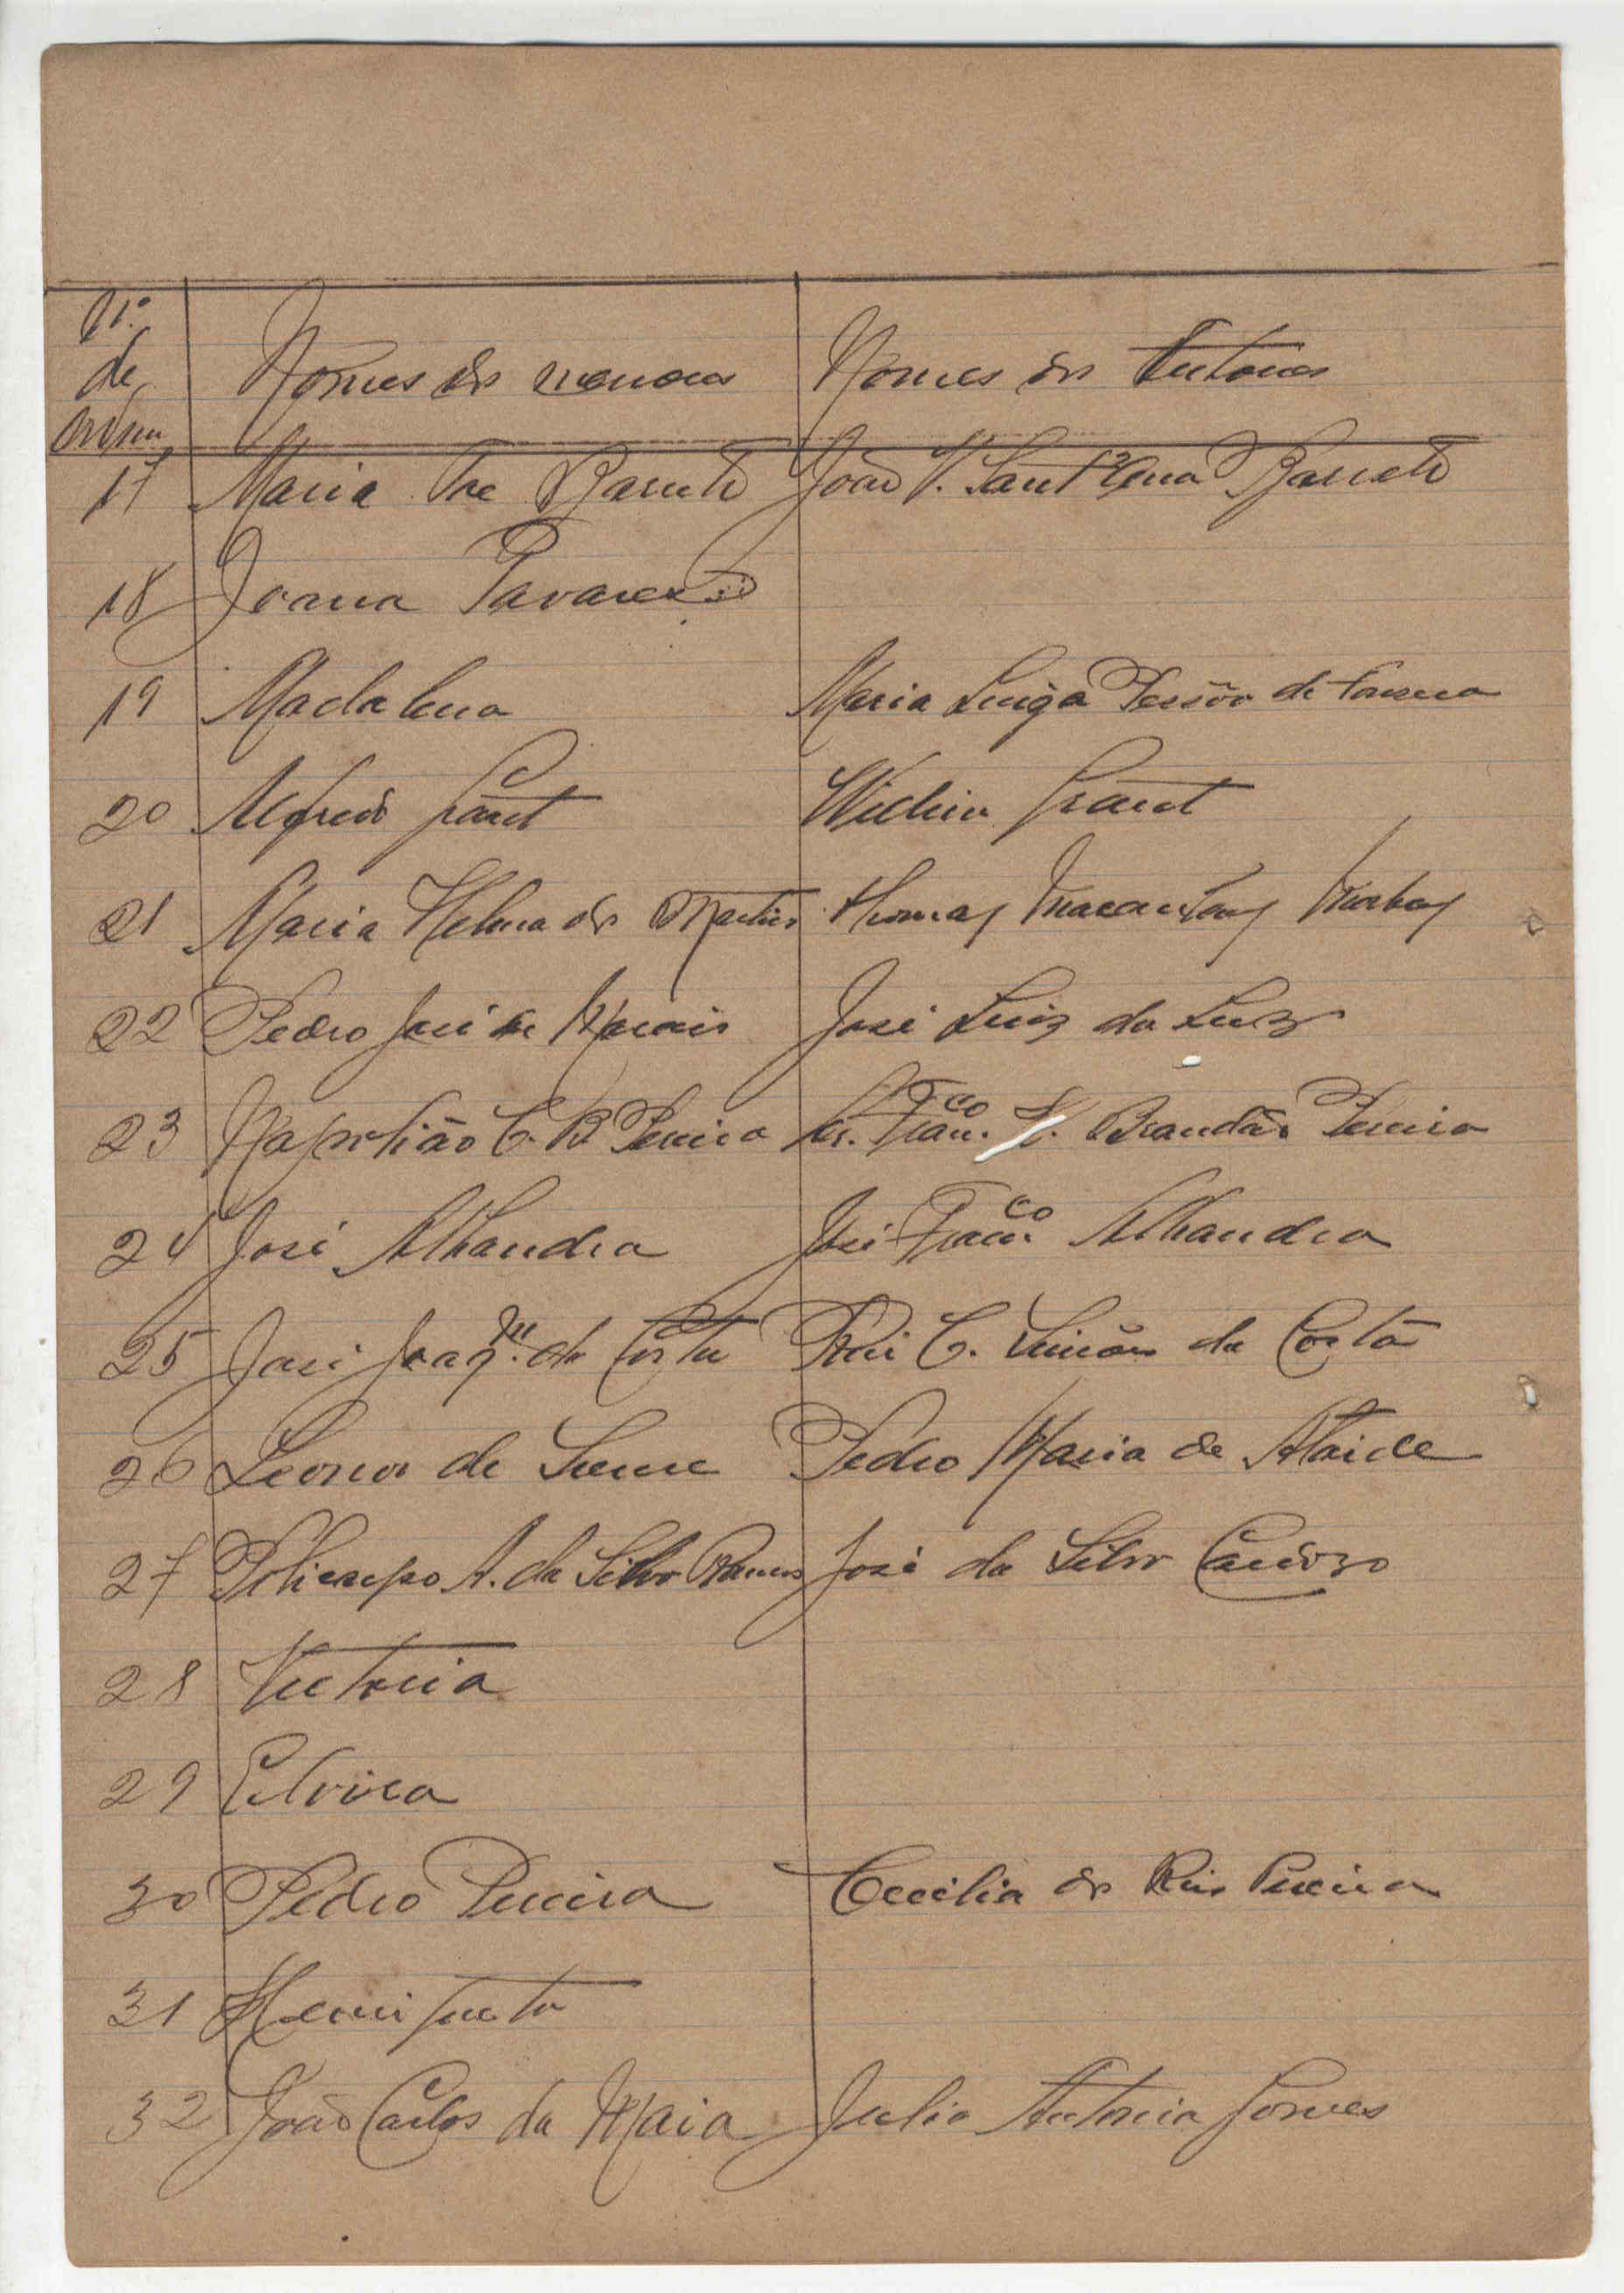 Nº de ordem
Nomes dos menores
Nomes dos Tutores
17 Maria Barreto João V. Sant'Anna Barreto
18 Joana Tavares
19 Madalena Maria Luiza Pessôa de
20 Alfredo Grant William Grant
21 Maria Helena dos Martires Thomaz
22 Pedro José de Moraes José Luiz da Luz
23 Napolião C. B. Pereira Dr. Franco. L. Brandão Pereira
24 José Alhandra José Franco. Alhandra
25 José Joaqm. da Costa C. Simões da Costa
26 Leonor de Pedro Maria de Ataide
27 Policarpo A. da Silva Ramos José da Silva Cardozo
28 Victoria
29 Elvira
30 Pedro Pereira Cecilia dos Reis Pereira
31 Henriqueta
32 João Carlos da Maia Julia Antonia Gomes